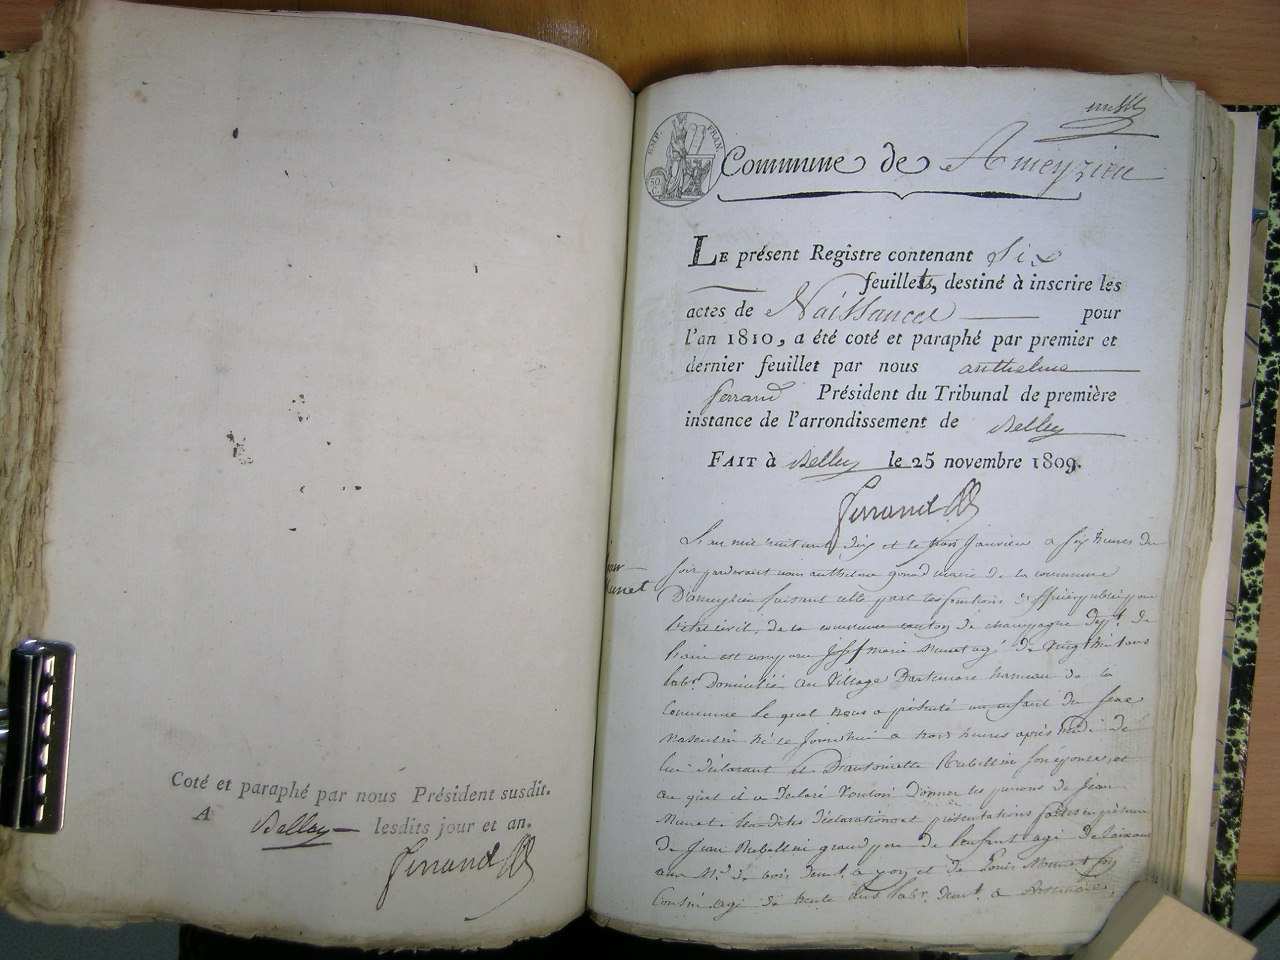 Coté et paraphé par nous Président susdit.
A Belley lesdits jour et an.
Ferrand
EMP. FRAN.
Commune de Ameyzieu
LE présent Registre contenant Six
feuillets, destiné à inscrire les
actes de Naissances pour
l'an 1810, a été coté et paraphé par premier et
dernier feuillet par nous anthelme
ferrand Président du Tribunal de première
instance de l'arrondissement de Belley
FAIT à Belley le 25 novembre 1809.
Ferrand
L'an mil huit cent dix et le trois Janvier a six heures du
soir pardevant nous anthelme maire de la commune
D'ameyzieu faisant les fonctions d'officier public pour
l'état civil, de la commune canton de champagne Dept. de
l'ain est comparu Josef marie Munet agé de vingt huit ans
labr. Domicilié au Village hameau de la
Commune le quel nous a présenté un enfant du sexe
masculin né ce Jourdhui a trois heures après midi de
lui déclarant et D'antoinette Rubellin son épouse, et
au quel il a Déclaré Vouloir Donner les prenoms de Jean
Munet. Les dites déclarations et présentations faites en présence
de Jean Rubellin grand pere de l'enfant agé de soixante
et de Louis Munet son
Cousin agé de trente ans labr. Demt. a
Munet